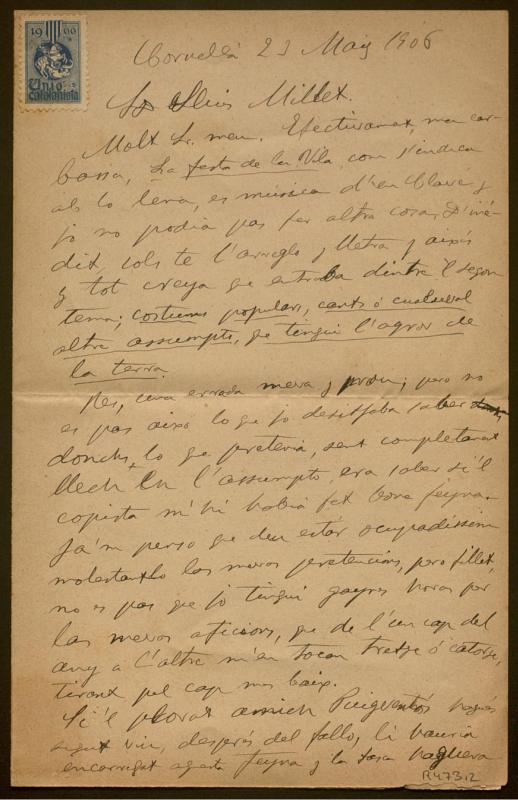 1900
Unió
catalanista
Cornellá 23 Maig 1906
Sr Lluis Millet.
Molt Sr. meu. Efectivament, meu car-
bassa, La festa de la Vila com s'indica
al lo lema, es música d'en Clavé y
jo no podia pas fer altra cosa. D'iné-
dit sols te l'arreglo y lletra y aixís
y tot creya qe entraba dintre 'l segon
tema; costums populars, cants ó cualsevol
altre assumpto, qe tingui l'agror de
la terra.
Res, una errada meva y prou; pero no
es pas aixo lo qe jo desitjaba saber
donchs lo qe pretenia, sent completament
llech en l'assumpto, era saber si 'l
copista m'hi habia fet bona feyna.
Ja 'm penso que deu estar ocupadíssim
molestantlo las mevas pretencions, pero fillet,
no es pas que jo tingui gayres horas per
las mevas aficions, qe de l'un cap del
any a l'altre m'en tocan tretze ó catorse,
tirant pel cap mes baix.
Si 'l plorat amich Puigventós hagués
sigut viu, després del fallo, li hauria
encarregat aquesta feyna y la cosa haguera
R.473.2